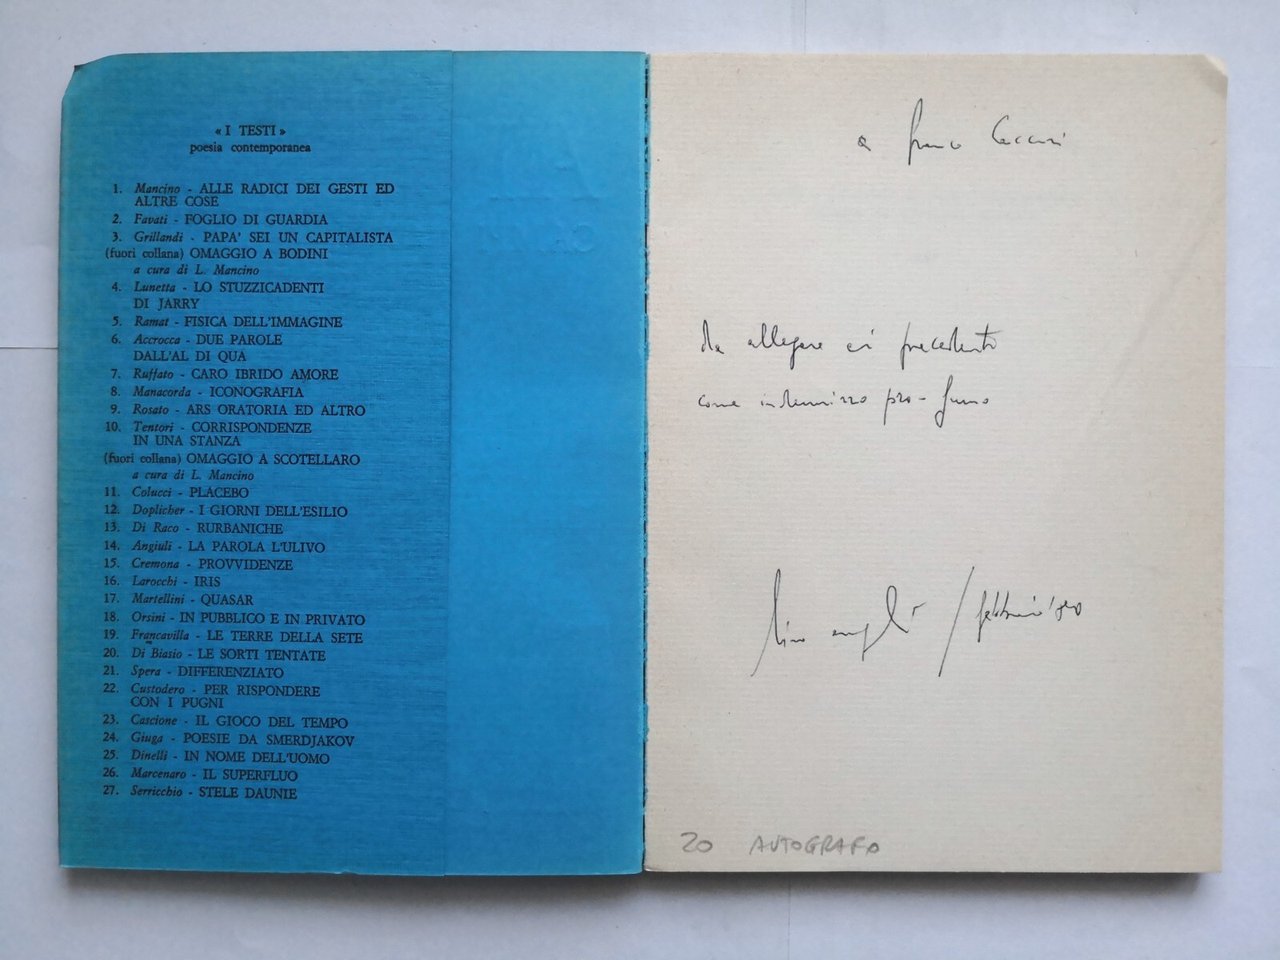 « I TESTI »
poesia contemporanea
1. Mancino - ALLE RADICI DEI GESTI ED
ALTRE COSE
2. Favati - FOGLIO DI GUARDIA
3. Grillandi - PAPA' SEI UN CAPITALISTA
(fuori collana) OMAGGIO A BODINI
a cura di L. Mancino
4. Lunetta - LO STUZZICADENTI
DI JARRY
5. Ramat - FISICA DELL'IMMAGINE
6. Accrocca - DUE PAROLE
DALL'AL DI QUA
7. Ruffato - CARO IBRIDO AMORE
8. Manacorda - ICONOGRAFIA
9. Rosato - ARS ORATORIA ED ALTRO
10. Tentori - CORRISPONDENZE
IN UNA STANZA
(fuori collana) OMAGGIO A SCOTELLARO
a cura di L. Mancino
11. Colucci - PLACEBO
12. Doplicher - I GIORNI DELL'ESILIO
13. Di Raco - RURBANICHE
14. Angiuli - LA PAROLA L'ULIVO
15. Cremona - PROVVIDENZE
16. Larocchi - IRIS
17. Martellini - QUASAR
18. Orsini - IN PUBBLICO E IN PRIVATO
19. Francavilla - LE TERRE DELLA SETE
20. Di Biasio - LE SORTI TENTATE
21. Spera - DIFFERENZIATO
22. Custodero - PER RISPONDERE
CON I PUGNI
23. Cascione - IL GIOCO DEL TEMPO
24. Giuga - POESIE DA SMERDJAKOV
25. Dinelli - IN NOME DELL'UOMO
26. Marcenaro - IL SUPERFLUO
27. Serricchio - STELE DAUNIE
a franco
da allegare ai precedenti
come indennizzo pro-fumo
lino angiuli / febbraio '80
20 AUTOGRAFO